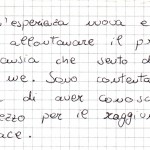 l'esperienza nuova e
allontanare il p
ausia che sento d
me. Sono contenta
di aver conosc
ezzo per il raggiu
ace.